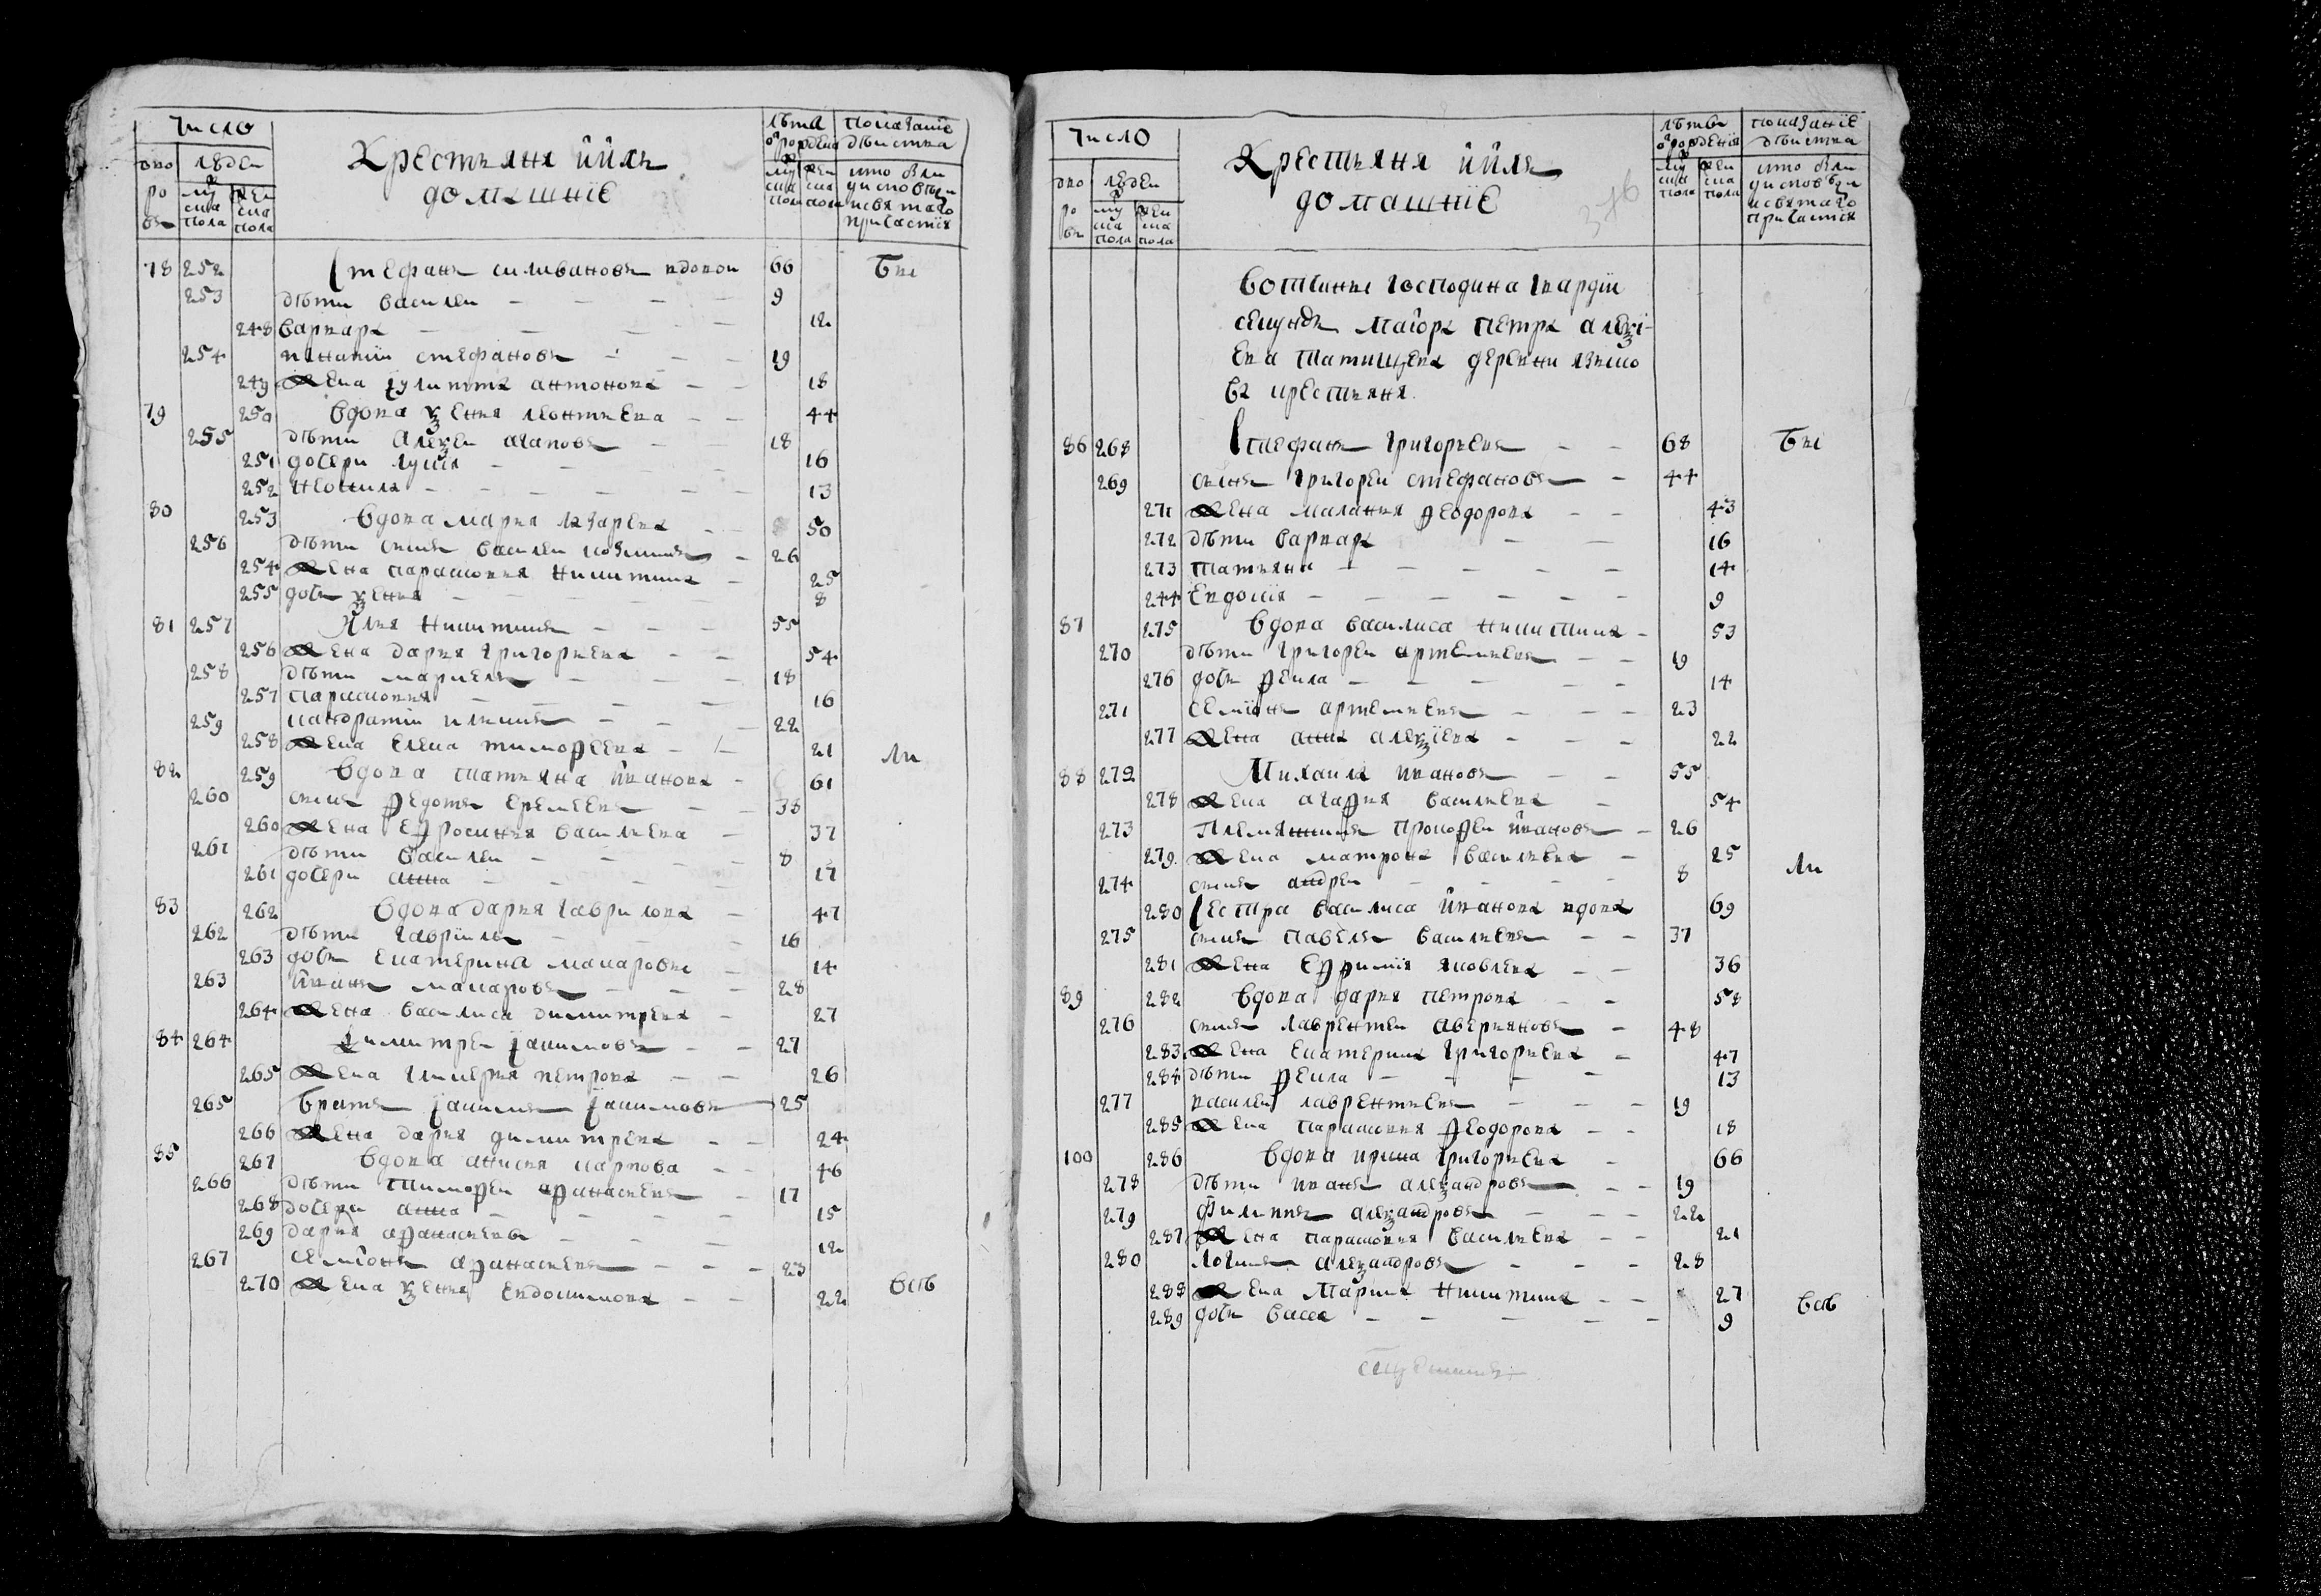 Число
Крестьяня и ихъ
домашніе
лѣта
ѿ рожденїа
показаніе
дѣиства
дво
ровъ
людеи
муска пола
женска пола
муска пола
женска пола
кто былъ
у исповѣди
и святаго
причастія
78 252 Стефанъ силивановъ вдовои 66 Бы
253 дѣти василеи 9
248 варвара 12
254 игнатіи стефановъ 19
249 жена улитта антонова 18
79 250 вдова ѯения леонтьева 44
255 дѣти алеѯеи агаповъ 18
251 дочери лукія 16
252 неонила 13
80 253 вдова марья лазарева 50
256 дѣти сынъ василеи козминъ 26
254 жена парасковья никитина 25
255 дочь ѯения 8
81 257 Илья никитинъ 55
256 жена дарья григорьева 54
258 дѣти маркелъ 18
257 парасковья 16
259 панкратіи ильинъ 22
258 жена елена тимоѳеева 21 Ли
82 259 вдова татьяна иванова 61
260 сынъ ѳедотъ еремеевъ 38
260 жена еѳросинья васильева 37
261 дѣти василеи 8
261 дочери анна 17
83 262 вдова дарья гаврилова 47
262 дѣти гаврїилъ 16
263 дочь екатерина макаровы 14
263 иванъ макаровъ 28
264 жена василиса димитрева 27
84 264 Димитреи іакимовъ 27
265 жена гликерья петрова 26
265 братъ іакимъ іакимовъ 25
266 жена дарья димитрева 24
85 267 вдова анисья карпова 46
266 дѣти тимоѳеи аѳанасьевъ 17
268 дочери анна 15
269 дарья аѳанасьевы 12
267 семїонъ аѳанасьевъ 23
270 жена ѯения евдокимова 22 всѣ
Число
Крестьяня и ихъ
домашніе
лѣта
ѿ рожденія
показаніе
дѣиства
дво
ровъ
людеи
муска пола
женска пола
муска пола
женска пола
кто былъ
у исповѣди
и святаго
причастія
вотчины господина гвардїи
секундъ маіора петра алеѯі-
ева татищева деревни языко
ва крестьяня.
86 268 Стефанъ григорьевъ 68 Бы
269 сынъ григореи стефановъ 44
271 жена маланья ѳеодорова 43
272 дѣти варвара 16
273 татьяна 14
244 евдокія 9
87 275 вдова василиса никитина 53
270 дѣти григореи артемьевъ 19
276 дочь ѳекла 14
271 семїонъ артемьевъ 23
277 жена анна алеѯіева 22
88 272 Михаила ивановъ 55
278 жена агаѳья васильева 54
273 Племянникъ прокоѳеи ивановъ 26
279 жена матрона васильева 25
274 сынъ андреи 8 Ли
280 Сестра василиса иванова вдова 69
275 сынъ павелъ васильевъ 37
281 жена еѳимія яковлева 36
89 282 вдова дарья петрова 58
276 сынъ лаврентеи аверьяновъ 48
283 жена екатерина григорьева 47
284 дѣти ѳекла 13
277 василеи лаврентьевъ 19
285 жена парасковья ѳеодорова 18
100 286 вдова ирина григорьева 66
278 дѣти иванъ алеѯандровъ 19
279 филиппъ алеѯандровъ 22
287 жена парасковья васильева 21
280 логинъ алеѯандровъ 28
288 жена марина никитина 27
289 дочь васса 9 всѣ